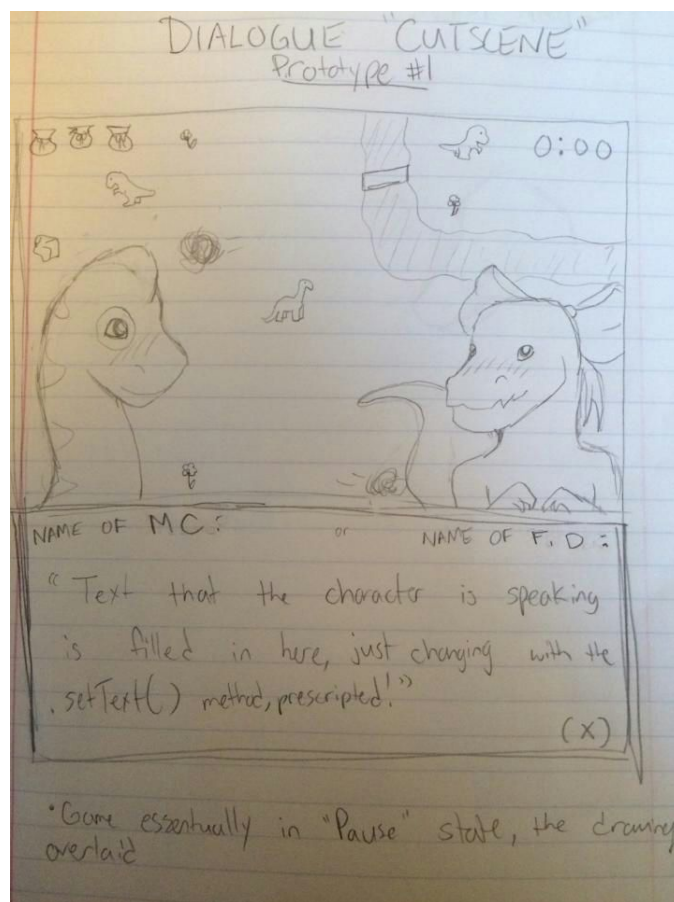 DIALOGUE "CUTSCENE"
Prototype #1
0:00
NAME OF MC: or NAME OF F.D:
"Text that the character is speaking
is filled in here, just changing with the
.setText() method, prescripted!"
(X)
•Game essentually in "Pause" state, the drawing
overlaid